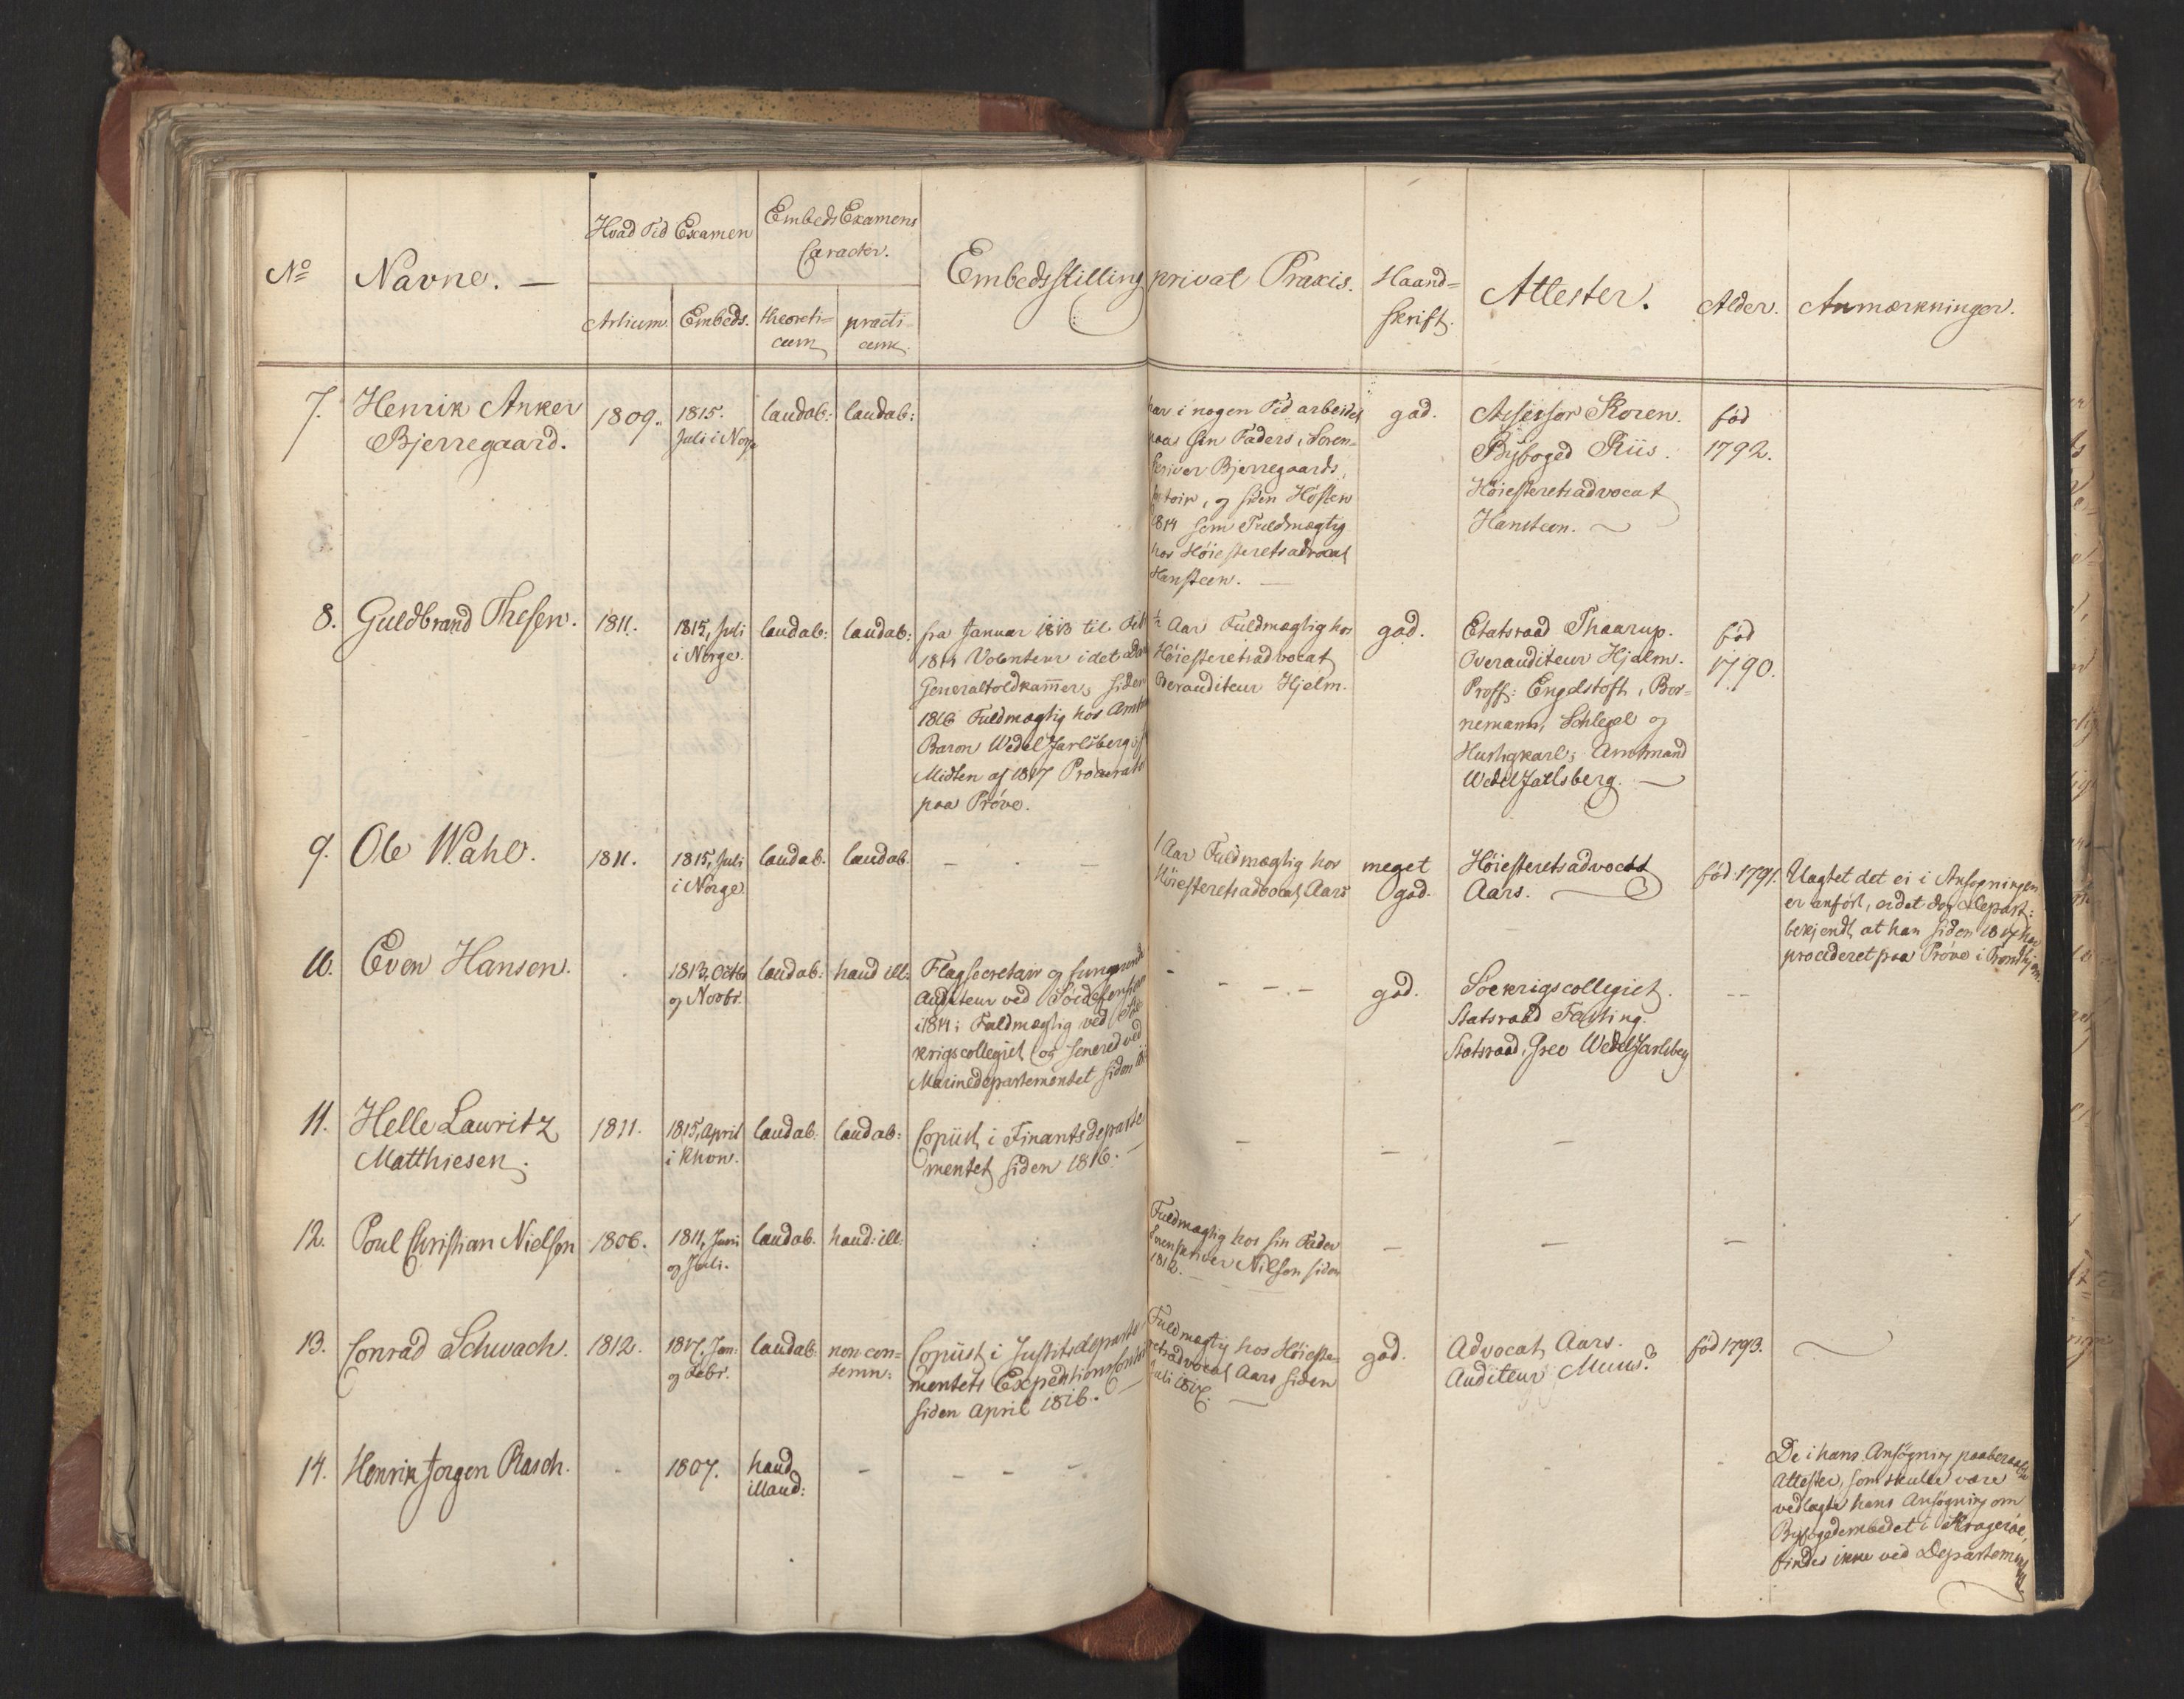 No
Navne. —
Hvad Tid Examen
Embeds Examens
Caracter.
Artium.
Embeds.
theoreti=
cum
practi=
cum.
Embedsstilling
privat Praxis.
Haand=
skrift.
Attester.
Alder.
Anmærkninger.
7.
Henrik Anker
Bjerregaard.
1809.
1815.
Juli i Norge
laudab:
laudab:
har i nogen Tid arbeidet
paa sin Faders, Soren=
skriver Bjerregaards,
og siden Høsten
1814 som Fuldmægtig
hos Høiesteretsadvocat
Hansteen. —
god.
Assessor Koren.
Byfoged Riis.
Høiesteretsadvocat
Hansteen. —
fød
1792.
8.
Guldbrand Thesen.
1811.
1815, Juli
i Norge.
laudab:
laudab:
fra Januar 1813 til
1814 Volonteur i det
Generaltoldkammer, siden
1816 Fuldmægtig hos
Baron Wedel Jarlsberg,
Midten af 1817
paa Prøve.
½ Aar Fuldmægtig hos
Høiesteretsadvocat
Overauditeur Hjelm.
god.
Etatsraad Thaarup.
Overauditeur Hjelm.
Proff: Engelstoft, Bor=
nemann, Schlegel og
Hurtigkarl; Amtmand
Wedel Jarlsberg. —
fød
1790.
9.
Ole Wahl.
1811.
1815, Juli
i Norge
laudab.
laudab.
— . —
1 Aar Fuldmægtig hos
Høiesteretsadvocat Aars
meget
god.
Høiesteretsadvocat
Aars. —
fød 1791.
Uagtet det ei i Ansøgningen
er anført, er det dog Depart:
bekjendt, at han siden 1817 har
procederet paa Prøve i Trondhjem.
10.
Even Hansen.
1813, Octbr
og Novbr.
laudab:
haud ill:
Flagsecretair og fungerende
Auditeur ved Sødefensionen
i 1814; Fuldmægtig ved Søe
krigscollegiet og senere ved
Marinedepartementet siden
- - - -
god.
Søekrigscollegiet.
Statsraad Fasting.
Statsraad, Grev Wedel Jarlsberg
--
11.
Helle Lauritz
Matthiesen.
1811.
1815, April
i Khvn.
laudab:
laudab:
Copiist i Finantsdeparte
mentet siden 1816. —
—
—
—
12.
Poul Christian Nielsen
1806.
1811, Juni
og Juli.
laudab.
haud: ill:
Fuldmægtig hos sin Fader
Sorenskriver Nilsen siden
1812. —
—
—
—
13.
Conrad Schwach.
1812.
1817, Jan:
og Febr.
laudab.
non con=
temn:
Copiist i Justitsdeparte
mentets Expeditionscontoir
siden April 1816. —
Fuldmægtig hos Høieste=
retsadvocat Aars siden
Juli 1817. —
god.
Advocat Aars.
Auditeur Muus.
fød 1793.
—
14.
Henrik Jørgen Rasch.
-
1807.
haud
illaud:
-
- - -
-
De i hans Ansøgning paaberaabte
Attester, som skulle være
vedlagte hans Ansøgning om
Byfogedembedet i Kragerøe,
findes ikke ved Departementet.